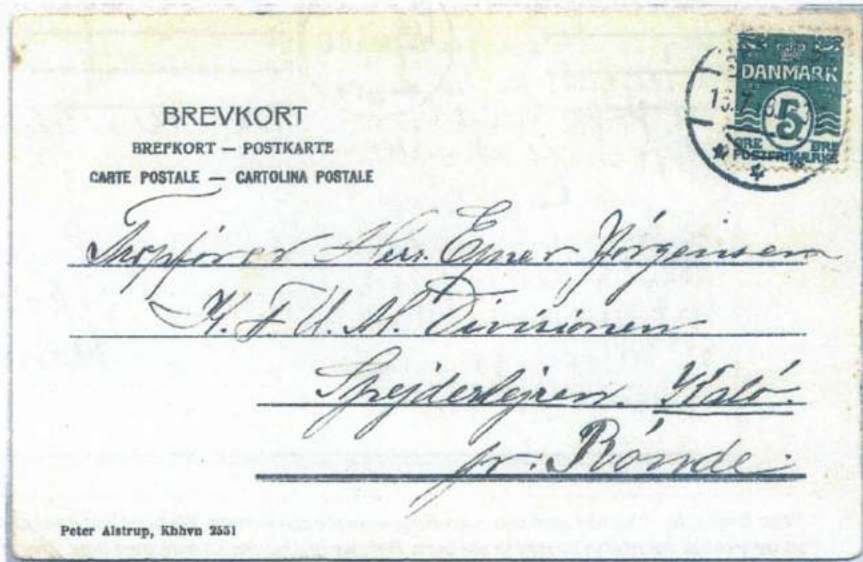 BREVKORT
BREFKORT — POSTKARTE
CARTE POSTALE — CARTOLINA POSTALE
DANMARK
5
ØRE ØRE
POSTFRIMÆRKE
Tropfører Herr. Ejner Jörgensen
K. F. U. M. Divisionen
Spejderlejren. Kalö.
pr. Rönde.
Peter Alstrup, Kbhvn 2551